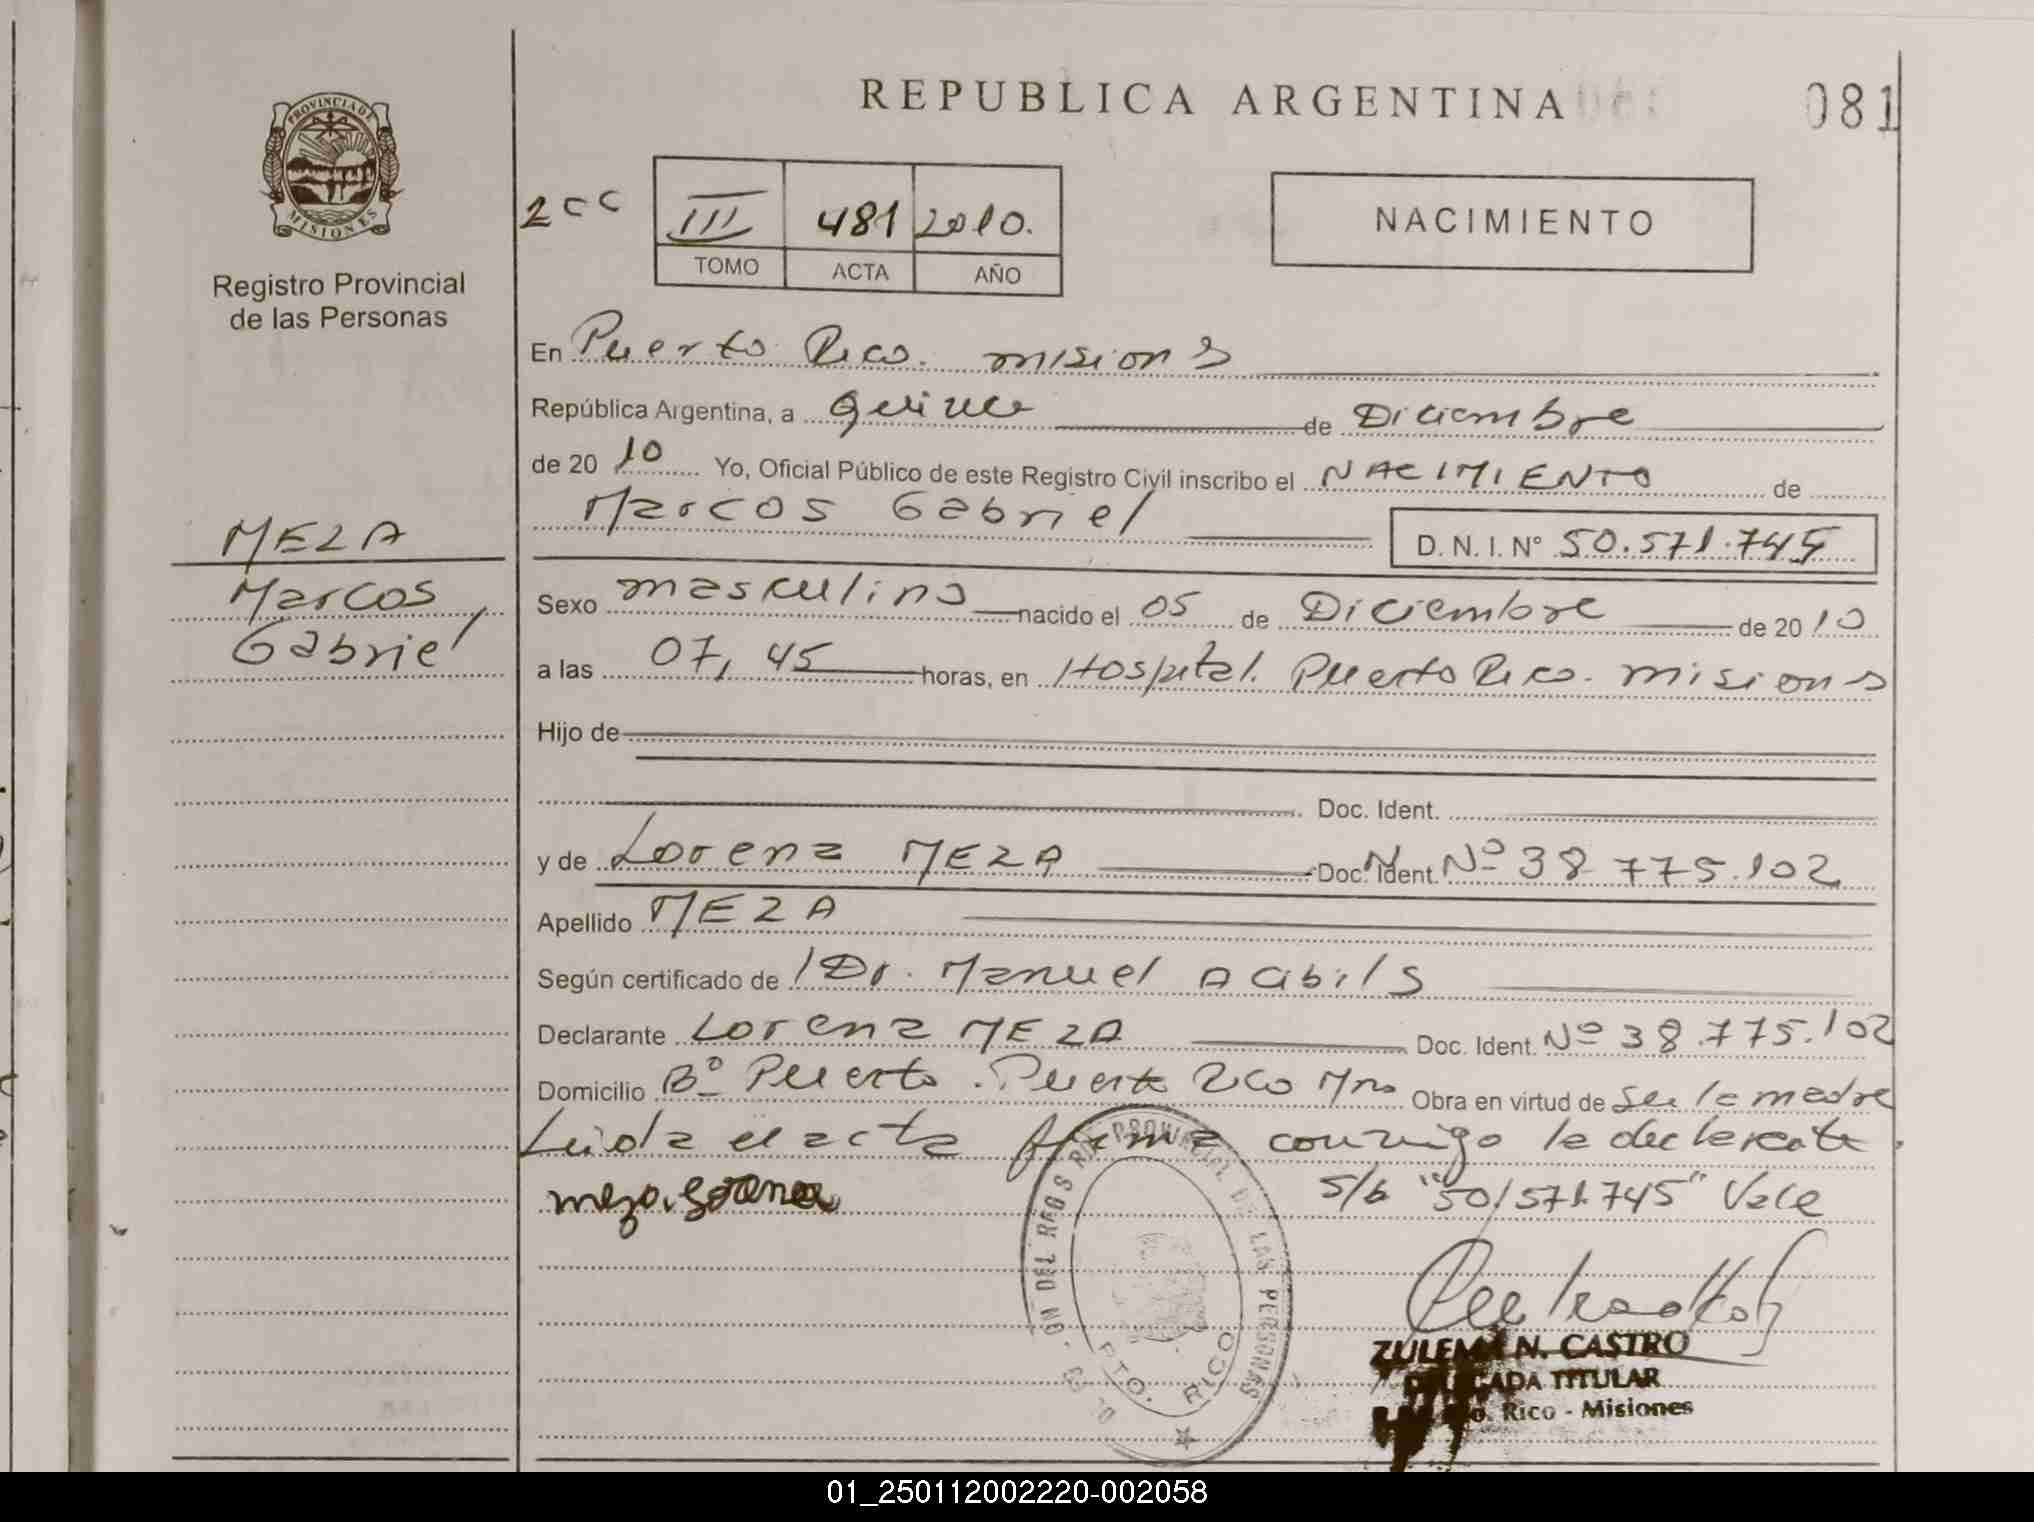 REPUBLICA ARGENTINA
081
PROVINCIA DE
MISIONES
Registro Provincial
de las Personas
2 c c
III 481 2010.
TOMO ACTA AÑO
NACIMIENTO
En Puerto Rico. misiones
República Argentina, a quince de Diciembre
de 20 10 Yo, Oficial Público de este Registro Civil inscribo el NACIMIENTO de
Marcos Gabriel
D. N. I. Nº 50.571.745
MEZA
Marcos
Gabriel
Sexo masculino nacido el 05 de Diciembre de 2010
a las 07,45 horas, en Hospital. Puerto Rico. misiones
Hijo de
Doc. Ident.
y de Lorena MEZA Doc. Ident. Nº 38 775.102
Apellido MEZA
Según certificado de Dr. Manuel
Declarante Lorena MEZA Doc. Ident. Nº 38.775.102
Domicilio Bº Puerto. Puerto Rico Mnes Obra en virtud de ser la madre
Leida el acta firma conmigo la declarante
meza. Lorena
S/b "50.571.745" Vale
PROVINCIAL DE LAS PERSONAS
PTO. RICO
ZULEMA N. CASTRO
DELEGADA TITULAR
Pto. Rico - Misiones
01_250112002220-002058